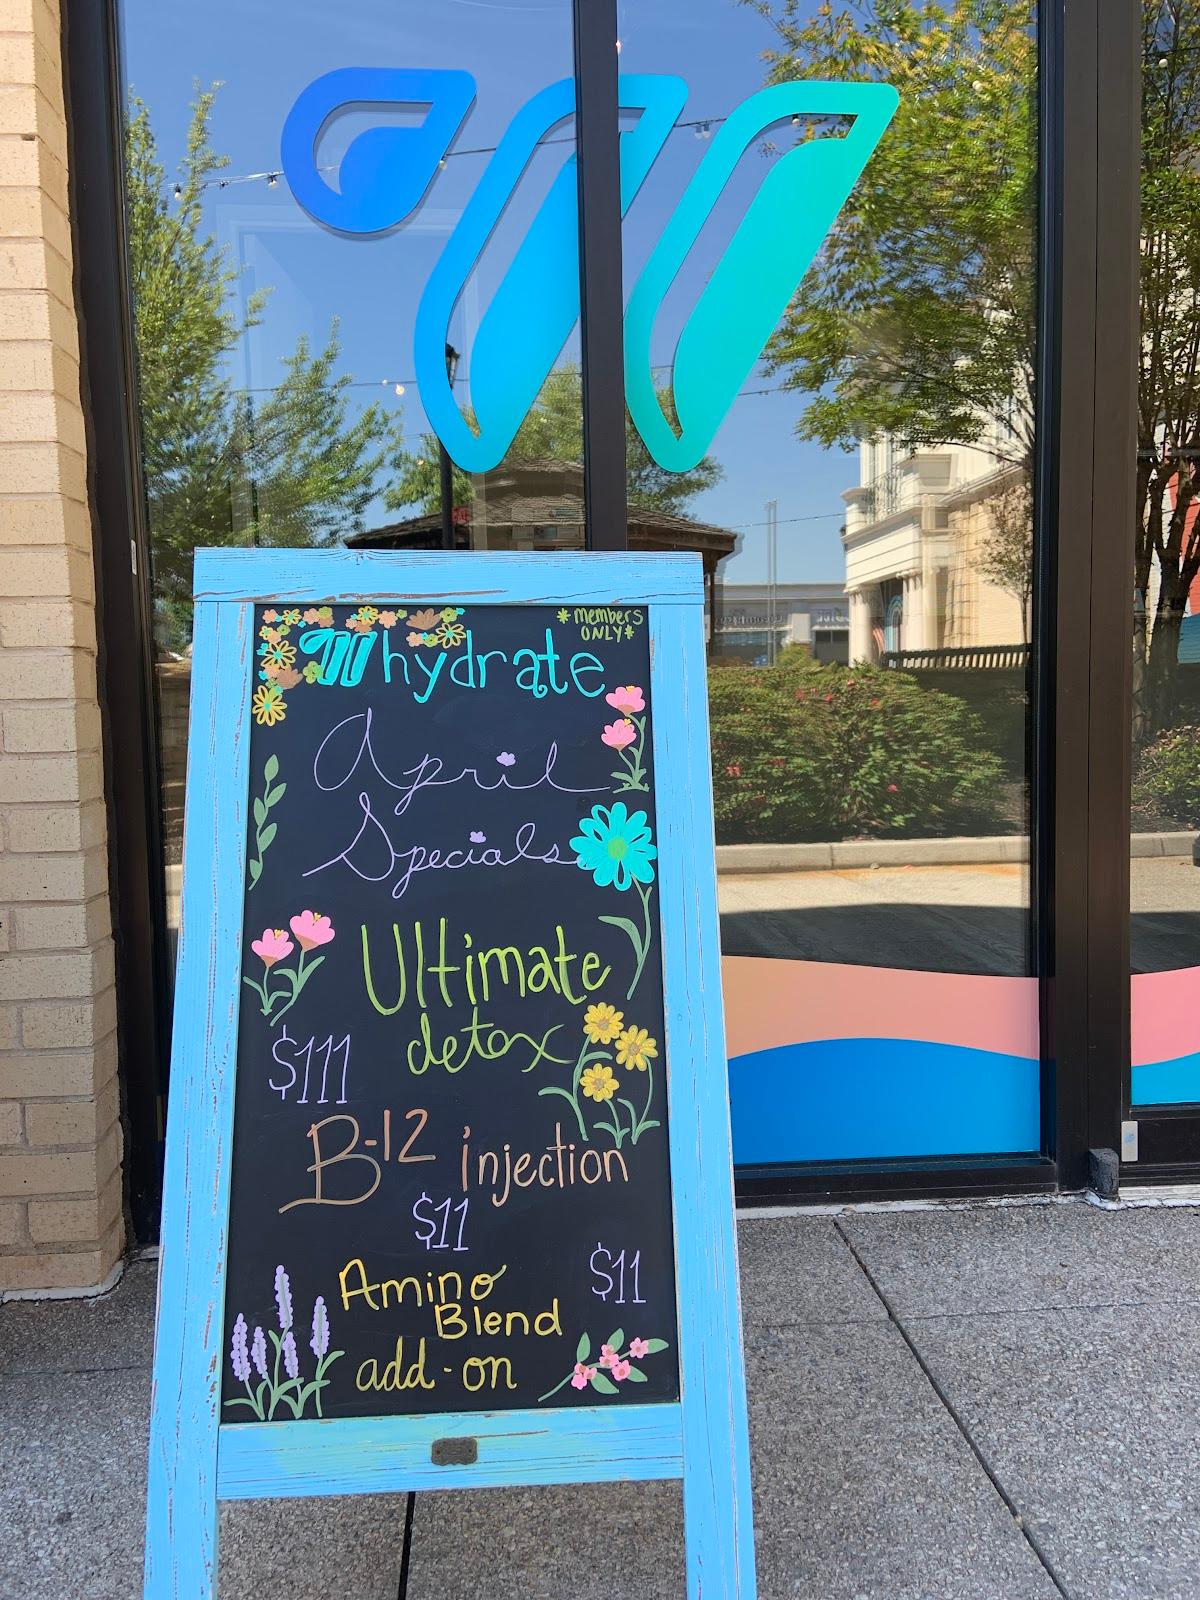 Whydrate
*members
ONLY*
April
Specials
Ultimate
detox
$111
B-12 injection
$11
Amino
Blend
add-on
$11